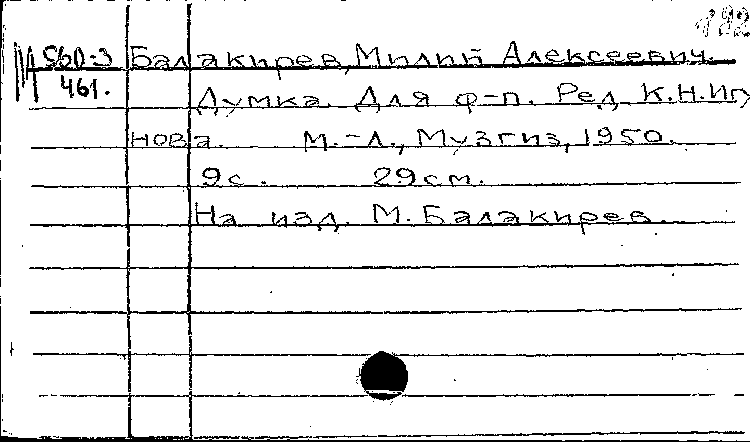 192
М 560-3
461.
Балакирев, Милий Алексеевич.
Думка. Для ф-п. Ред. К.Н.Игу
нова. М.-Л., Музгиз, 1950.
9с. 29см.
На изд. М. Балакирев.